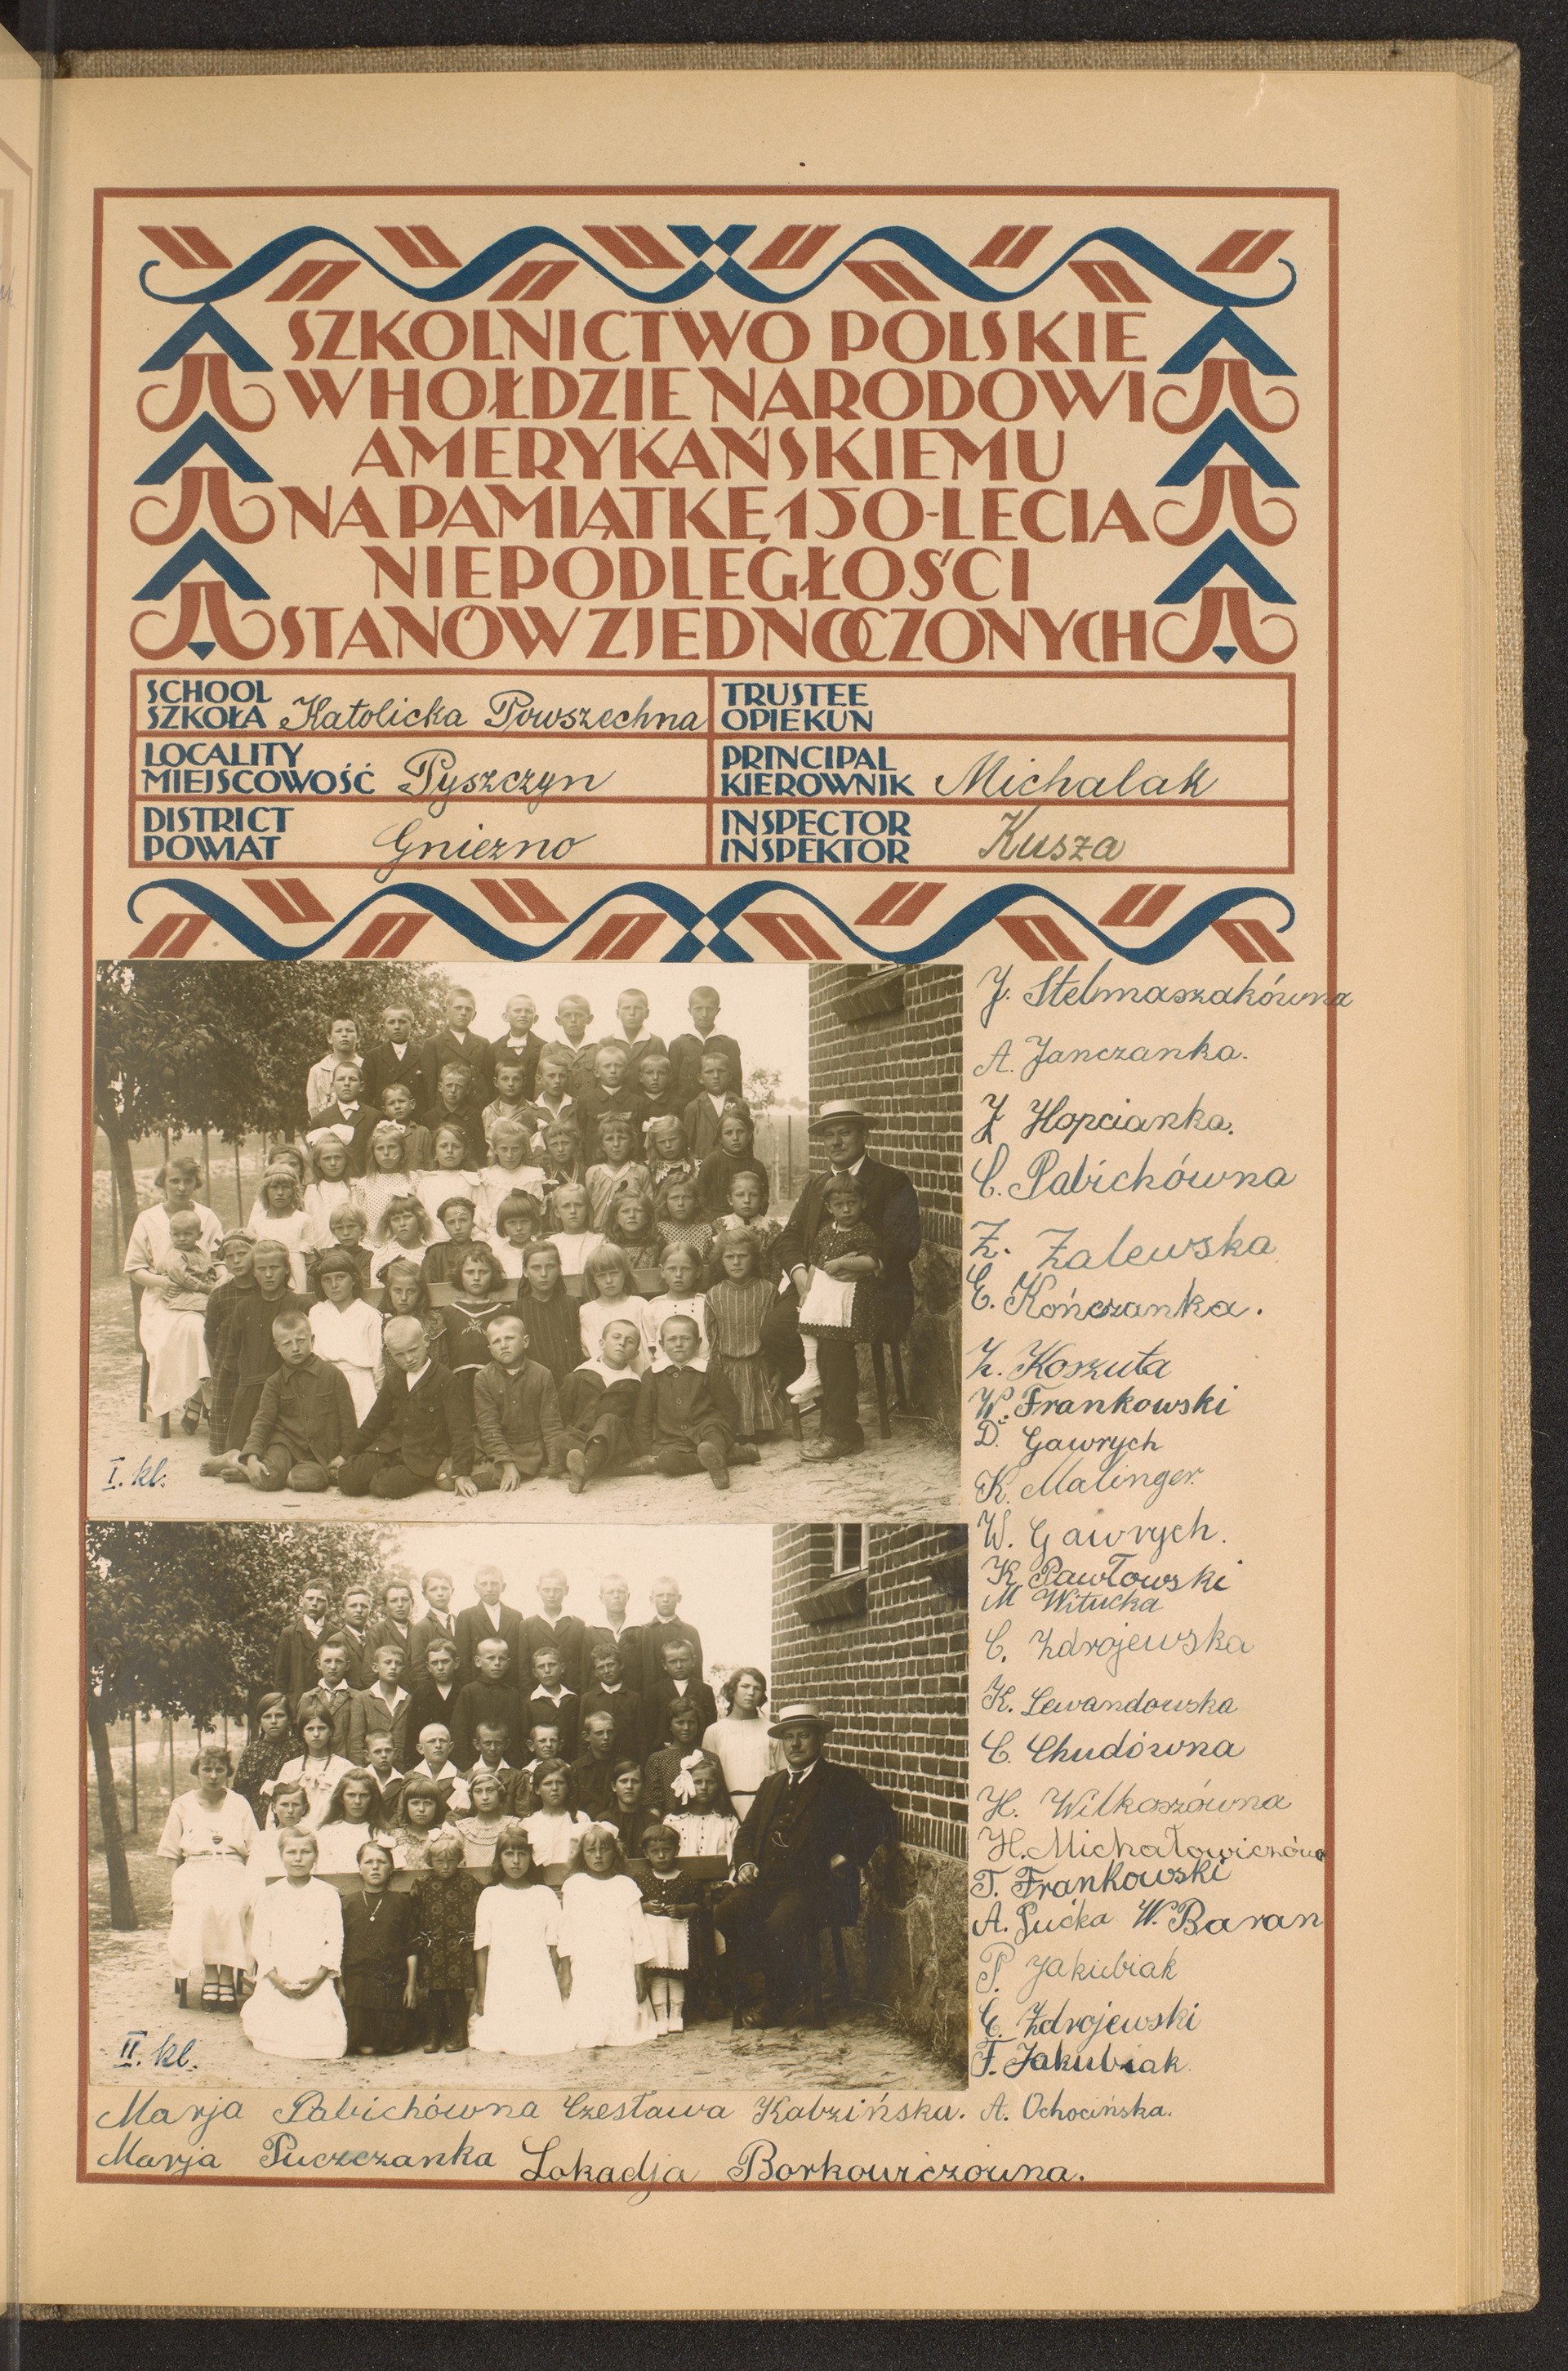 SZKOLNICTWO POLSKIE
W HOŁDZIE NARODOWI
AMERYKAŃSKIEMU
NA PAMIĄTKĘ 150-LECIA
NIEPODLEGŁOŚCI
STANÓW ZJEDNOCZONYCH
SCHOOL
SZKOŁA Katolicka Powszechna
TRUSTEE
OPIEKUN
LOCALITY
MIEJSCOWOŚĆ Pyszczyn
PRINCIPAL
KIEROWNIK Michalak
DISTRICT
POWIAT Gniezno
INSPECTOR
INSPEKTOR Kusza
J. Stelmaszakówna
A. Janczanka.
J Hopcianka.
C. Pabichówna
Z. Zalewska
E. Kończanka.
Z. Koszuta
W. Frankowski
D. Gawrych
K. Malinger.
I. kl.
W. Gawrych.
K Pawłowski
M Witucka
C. Zdrojewska
K. Lewandowska
C. Chudówna
H. Wilkoszówna
H. Michałowiczówna
T. Frankowski
A. W. Baran
P. Jakubiak
C. Zdrojewski
F. Jakubiak
II. kl.
Marja Pabichówna Czesława Kabzińska. A. Ochocińska.
Marja Puczczanka Lokadja Borkowiczowna.